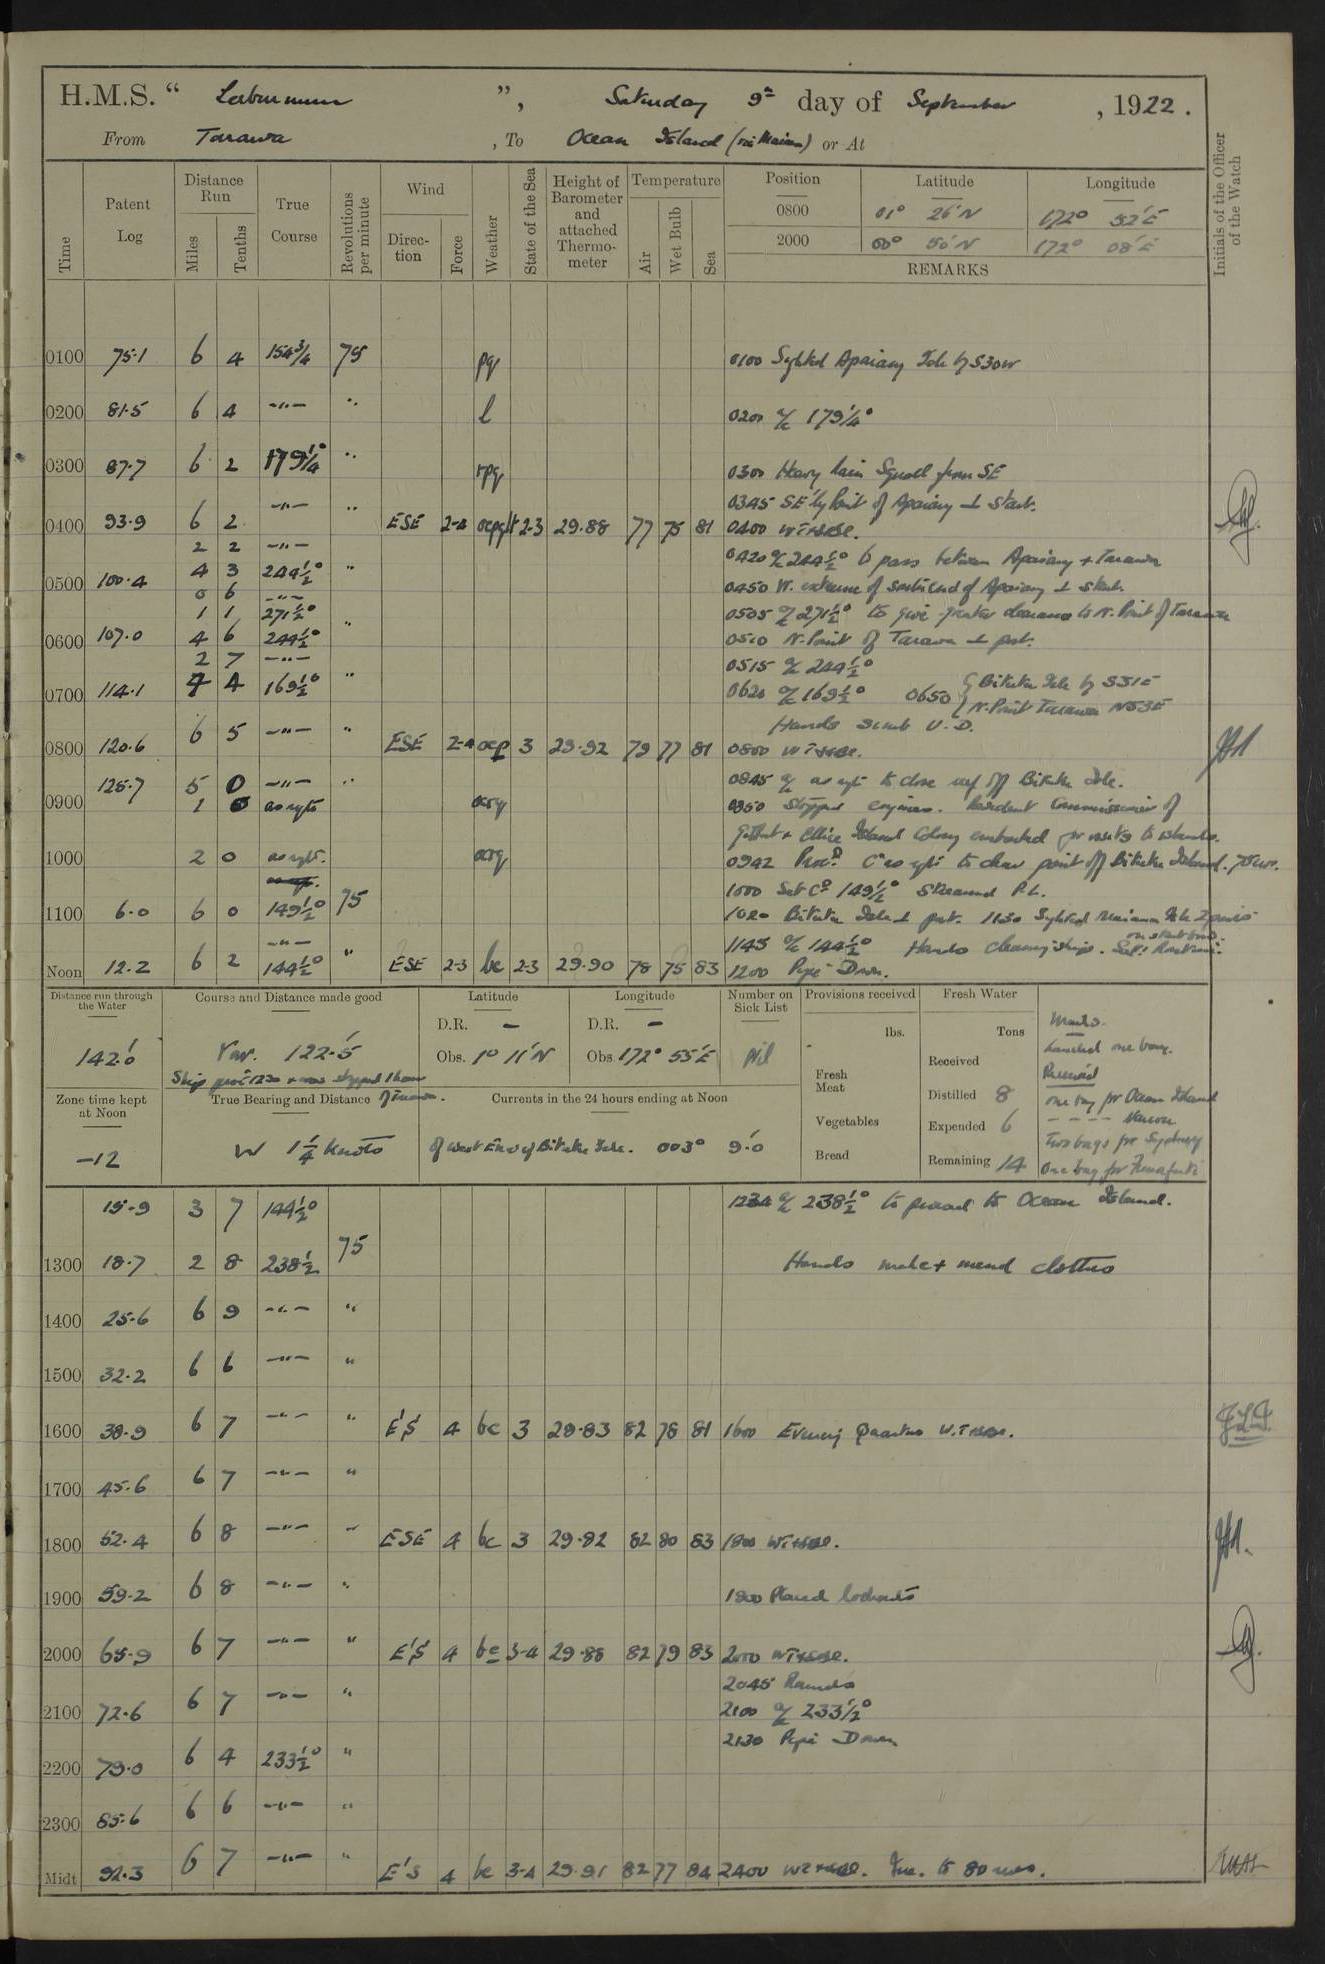 H.M.S. “ Laburnum ”, Saturday 9th day of September , 1922 .
From Tarawa , To Ocean Island (via Maiana) or At
Initials of the Officer of the Watch
Time Patent Log Distance Run Miles Tenths True Course Revolutions per minute Wind Direction Force Weather State of the Sea Height of Barometer and attached Thermometer Temperature Air Wet Bulb Sea
Position Latitude Longitude
0800 01° 26'N 172° 52'E
2000 00° 50'N 172° 08'E
REMARKS
0100 75.1 6 4 154 3/4 75 pq 0100 Sighted Apaiang Isle by S30W
0200 81.5 6 4 -"- " l 0200 a/c 179 1/4°
0300 87.7 6 2 179 1/4° " rpq 0300 Heavy Rain Squall from SE
0345 SE'ly Point of Apaiang ⊥ Starb.
0400 93.9 6 2 -"- " ESE 2-4 2-3 29.88 77 75 81 0400
2 2 -"-
0420 a/c 244 1/2° to pass between Apaiang + Tarawa
0500 100.4 4 3 244 1/2° "
0 6 -"- 0450 W. extreme of south end of Apaiang ⊥ Starb.
1 1 271 1/2° 0505 a/c 271 1/2° to give greater clearance to N. Point of Tarawa
0600 107.0 4 6 244 1/2° " 0510 N. Point of Tarawa ⊥ port.
2 7 -"- 0515 a/c 244 1/2°
0700 114.1 4 4 169 1/2° " 0620 a/c 169 1/2° 0650 { Bitutu Isle by S31E
{ N. Point Tarawa N53E
Hands scrub U.D.
0800 120.6 6 5 -"- " ESE 2-4 ocp 3 29.92 79 77 81 0800
125.7 5 0 -"- " 0845 a/c as reqte to close reef off Bitutu Isle.
0900 1 0 as reqte ocrq 0850 Stopped engines. Resident Commissioner of
Gilbert + Ellice Island Colony embarked for visits to islands.
1000 2 0 as reqte. ocrq 0942 Procd. Co as reqte to clear point off Bitutu Island.
1000 Set Co. 149 1/2° Streamed P.L.
1100 6.0 6 0 149 1/2° 75 1020 Bitutu Isle ⊥ port. 1130 Sighted Maiana Isle
on starb bow.
-"- 1145 a/c 144 1/2° Hands cleaning ship.
Noon 12.2 6 2 144 1/2° " ESE 2-3 bc 2-3 29.90 78 75 83 1200 Pipe Down.
Distance run through the Water Course and Distance made good Latitude Longitude Number on Sick List Provisions received Fresh Water
142.0 Var. 122.5 D.R. — D.R. — Nil lbs. Tons
Obs. 1° 11'N Obs. 172° 55'E
Fresh Meat Vegetables Bread
Received
Distilled 8
Expended 6
Remaining 14
Mails.
Landed one bag.
Received
one bag for Ocean Island
- - - - Nauru
Two bags for Sydney
One bag for Funafuti
Zone time kept at Noon True Bearing and Distance Currents in the 24 hours ending at Noon
-12 W 1 1/4 knots off West End of Bitutu Isle. 003° 9.0
15.9 3 7 144 1/2° 1234 a/c 238 1/2° to proceed to Ocean Island.
1300 18.7 2 8 238 1/2 75 Hands make + mend clothes
1400 25.6 6 9 -"- "
1500 32.2 6 6 -"- "
1600 38.9 6 7 -"- " E'S 4 bc 3 29.83 82 78 81 1600 Evening Quarters
1700 45.6 6 7 -"- "
1800 52.4 6 8 -"- " ESE 4 bc 3 29.82 82 80 83 1800
1900 59.2 6 8 -"- " Placed lookouts
2000 65.9 6 7 -"- " E'S 4 bc 3-4 29.88 82 79 83 2000
2045 Rounds
2100 72.6 6 7 -"- " 2100 a/c 233 1/2°
2130 Pipe Down
2200 79.0 6 4 233 1/2° "
2300 85.6 6 6 -"- "
Midt 92.3 6 7 -"- " E'S 4 bc 3-4 29.91 82 77 84 2400 Inc. to 80 revs.